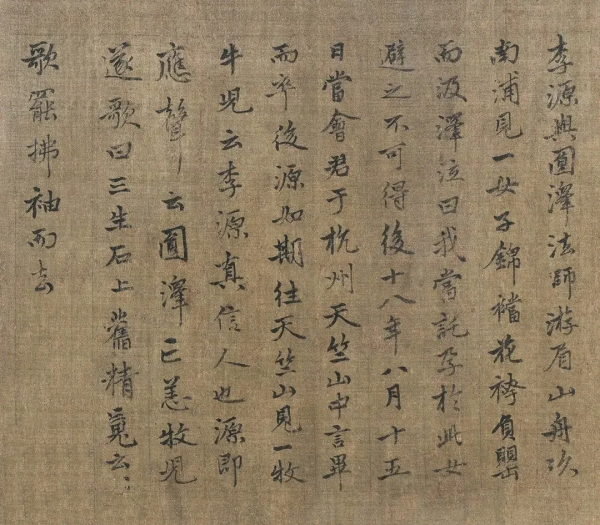 李源與圓澤法師游眉山舟次
南浦見一女子錦襠花袴負罌
而汲澤泣曰我當託孕於此女
避之不可得後十八年八月十五
日當會君于杭州天竺山中言畢
而卒後源如期往天竺山見一牧
牛兒云李源真信人也源即
應聲云圓澤亡恙牧兒
遂歌曰三生石上舊精䰟云〻
歌罷拂袖而去